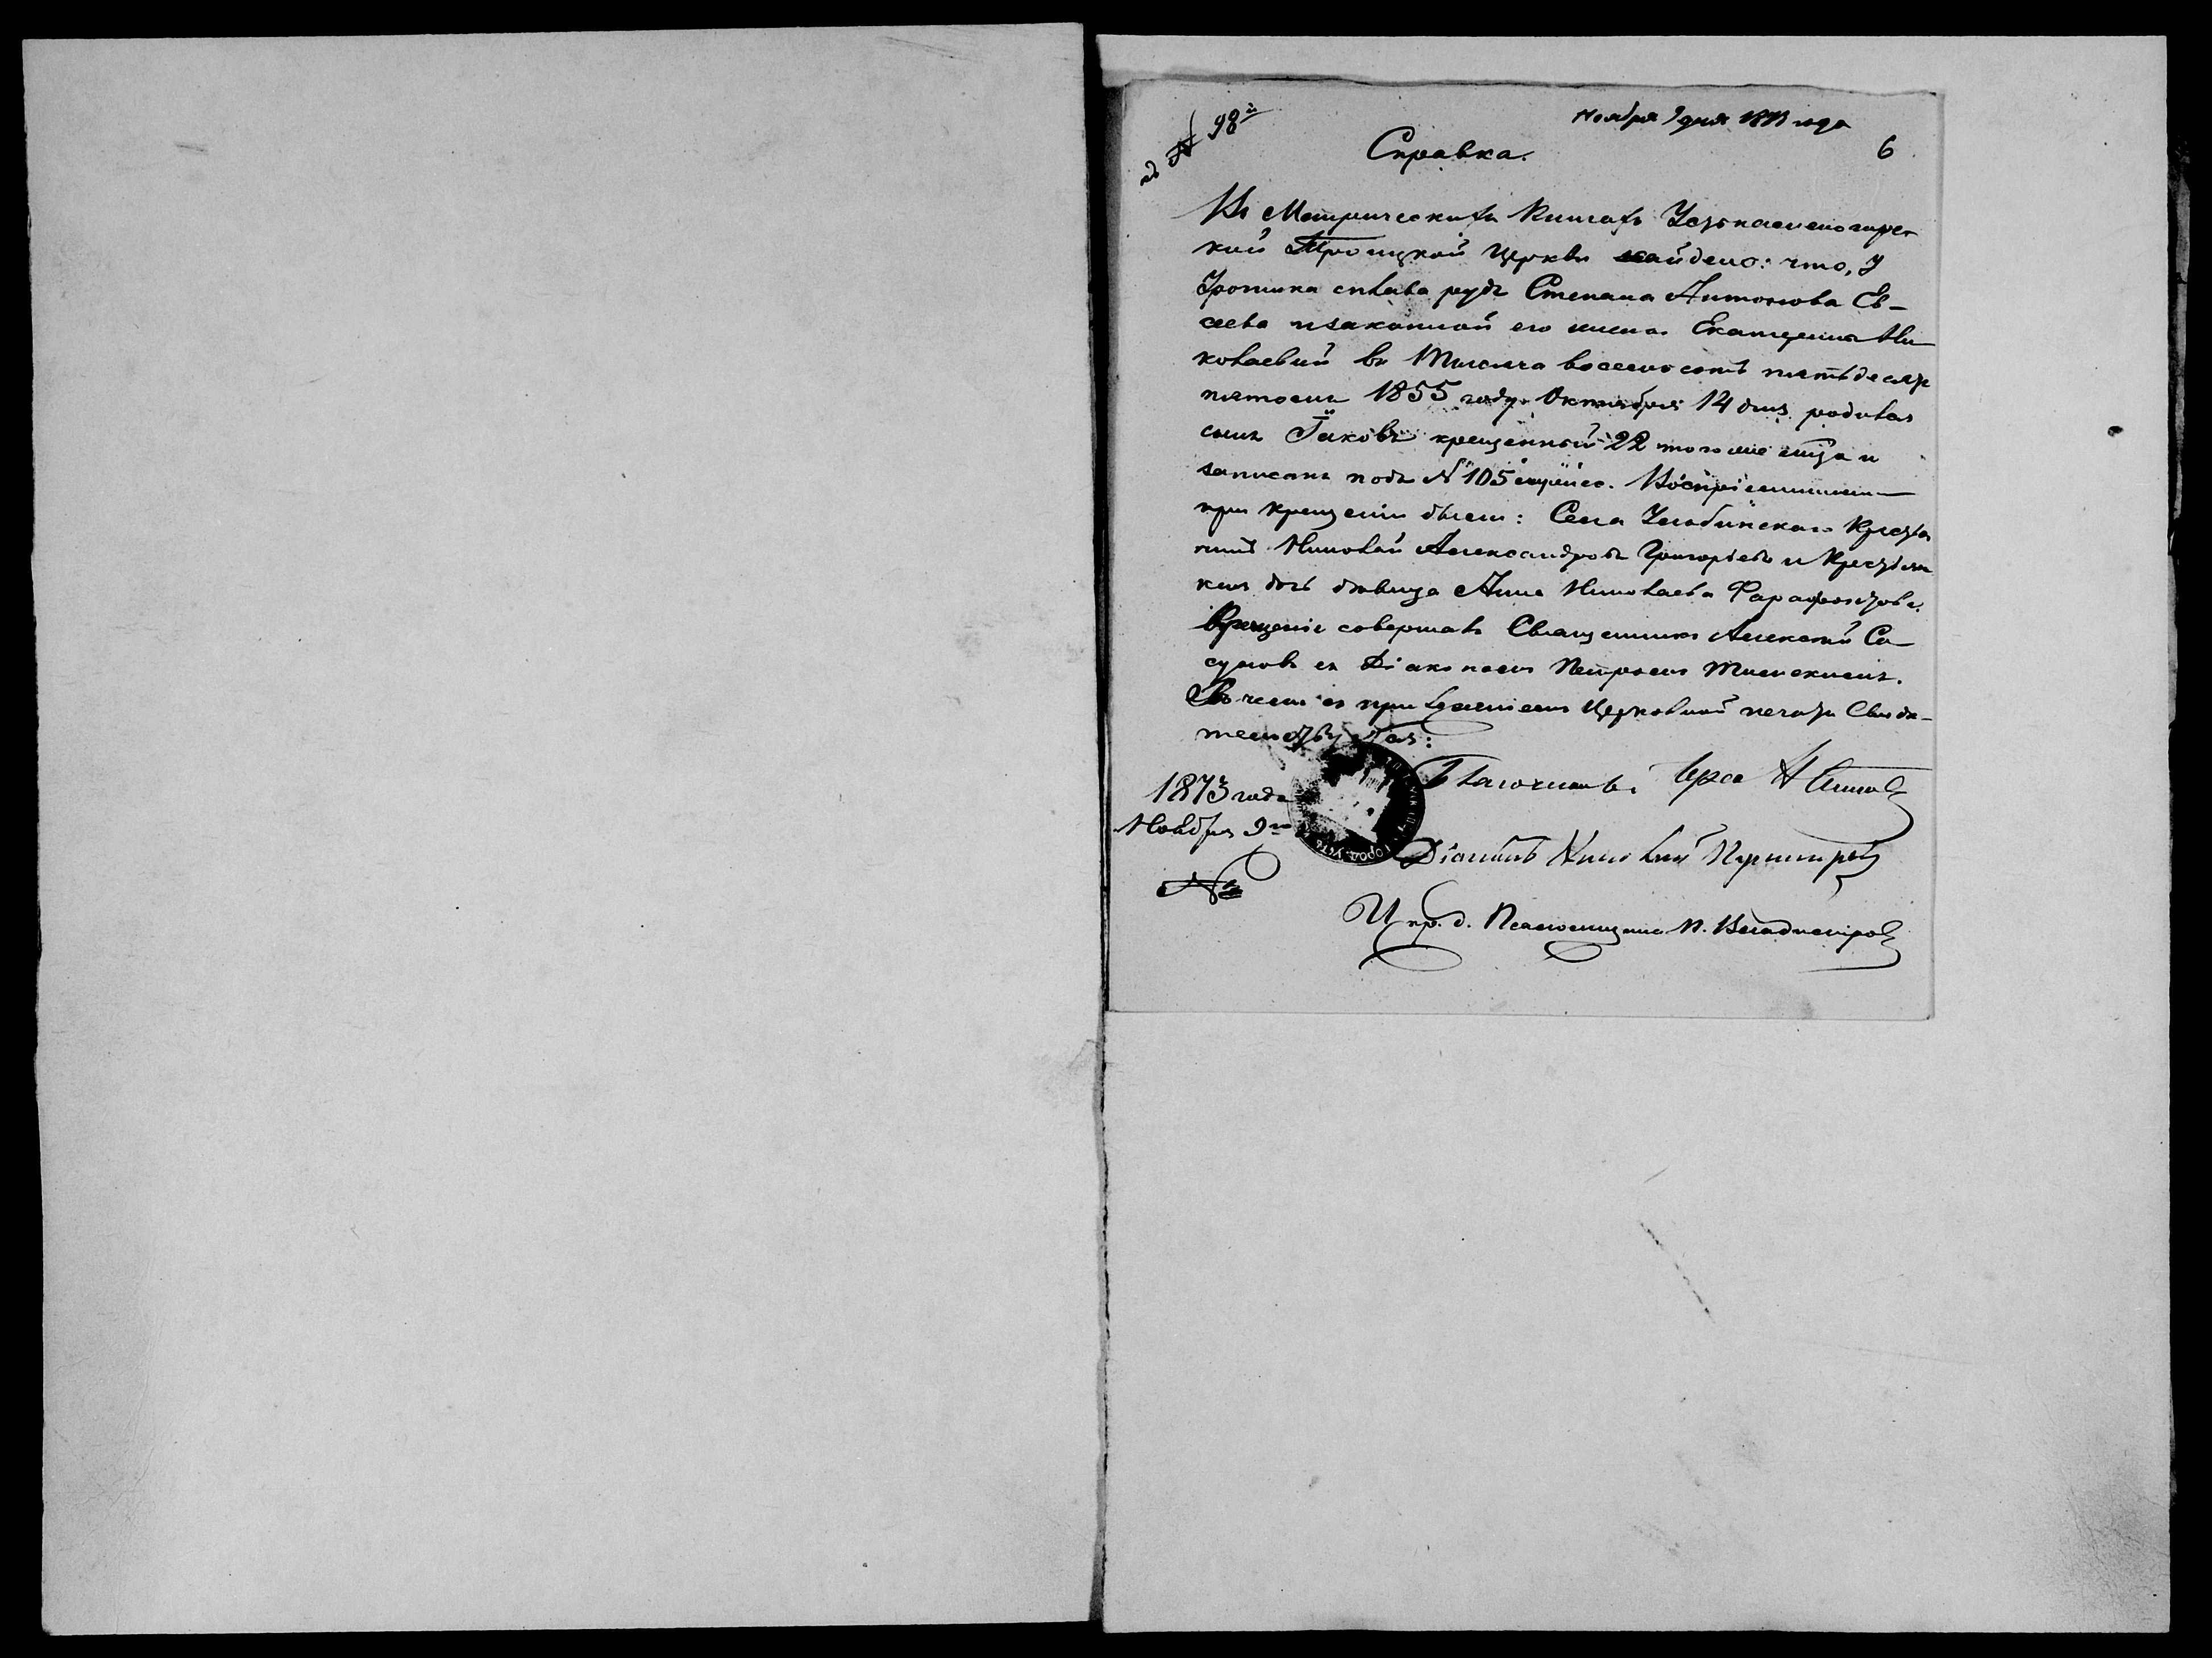 къ № 98й
Ноября 9 дня 1873 года
6
Справка.
Въ Метрическихъ Книгахъ Устькаменогорс-
кой Троицкой Церкви найдено: что, у
сплава рудъ Степана Антонова Ев-
сеева и законной его жены Екатерины Ни
колаевой въ Тысяча восемьсотъ пятьдесятъ
пятомъ 1855 году Октября 14 дня родился
сынъ Іаковъ крещенный 22 того же м‑ца и
записанъ подъ № 105 Воспріемниками
при крещеніи были: Села Крестья
нинъ Николай Александровъ Григорьевъ и Крестьян
ская дочь дѣвица Анна Николаева
Крещеніе совершалъ Священникъ Алексѣй Са
съ Діакономъ Петромъ
Въ чемъ съ приложеніемъ Церковной печати Свидѣ-
тельствуютъ:
1873 года
Ноября 9го
№
Благочинный Іерей А.
Діаконъ Николай
И. пр. д. Псаломщика Н. Владиміровъ